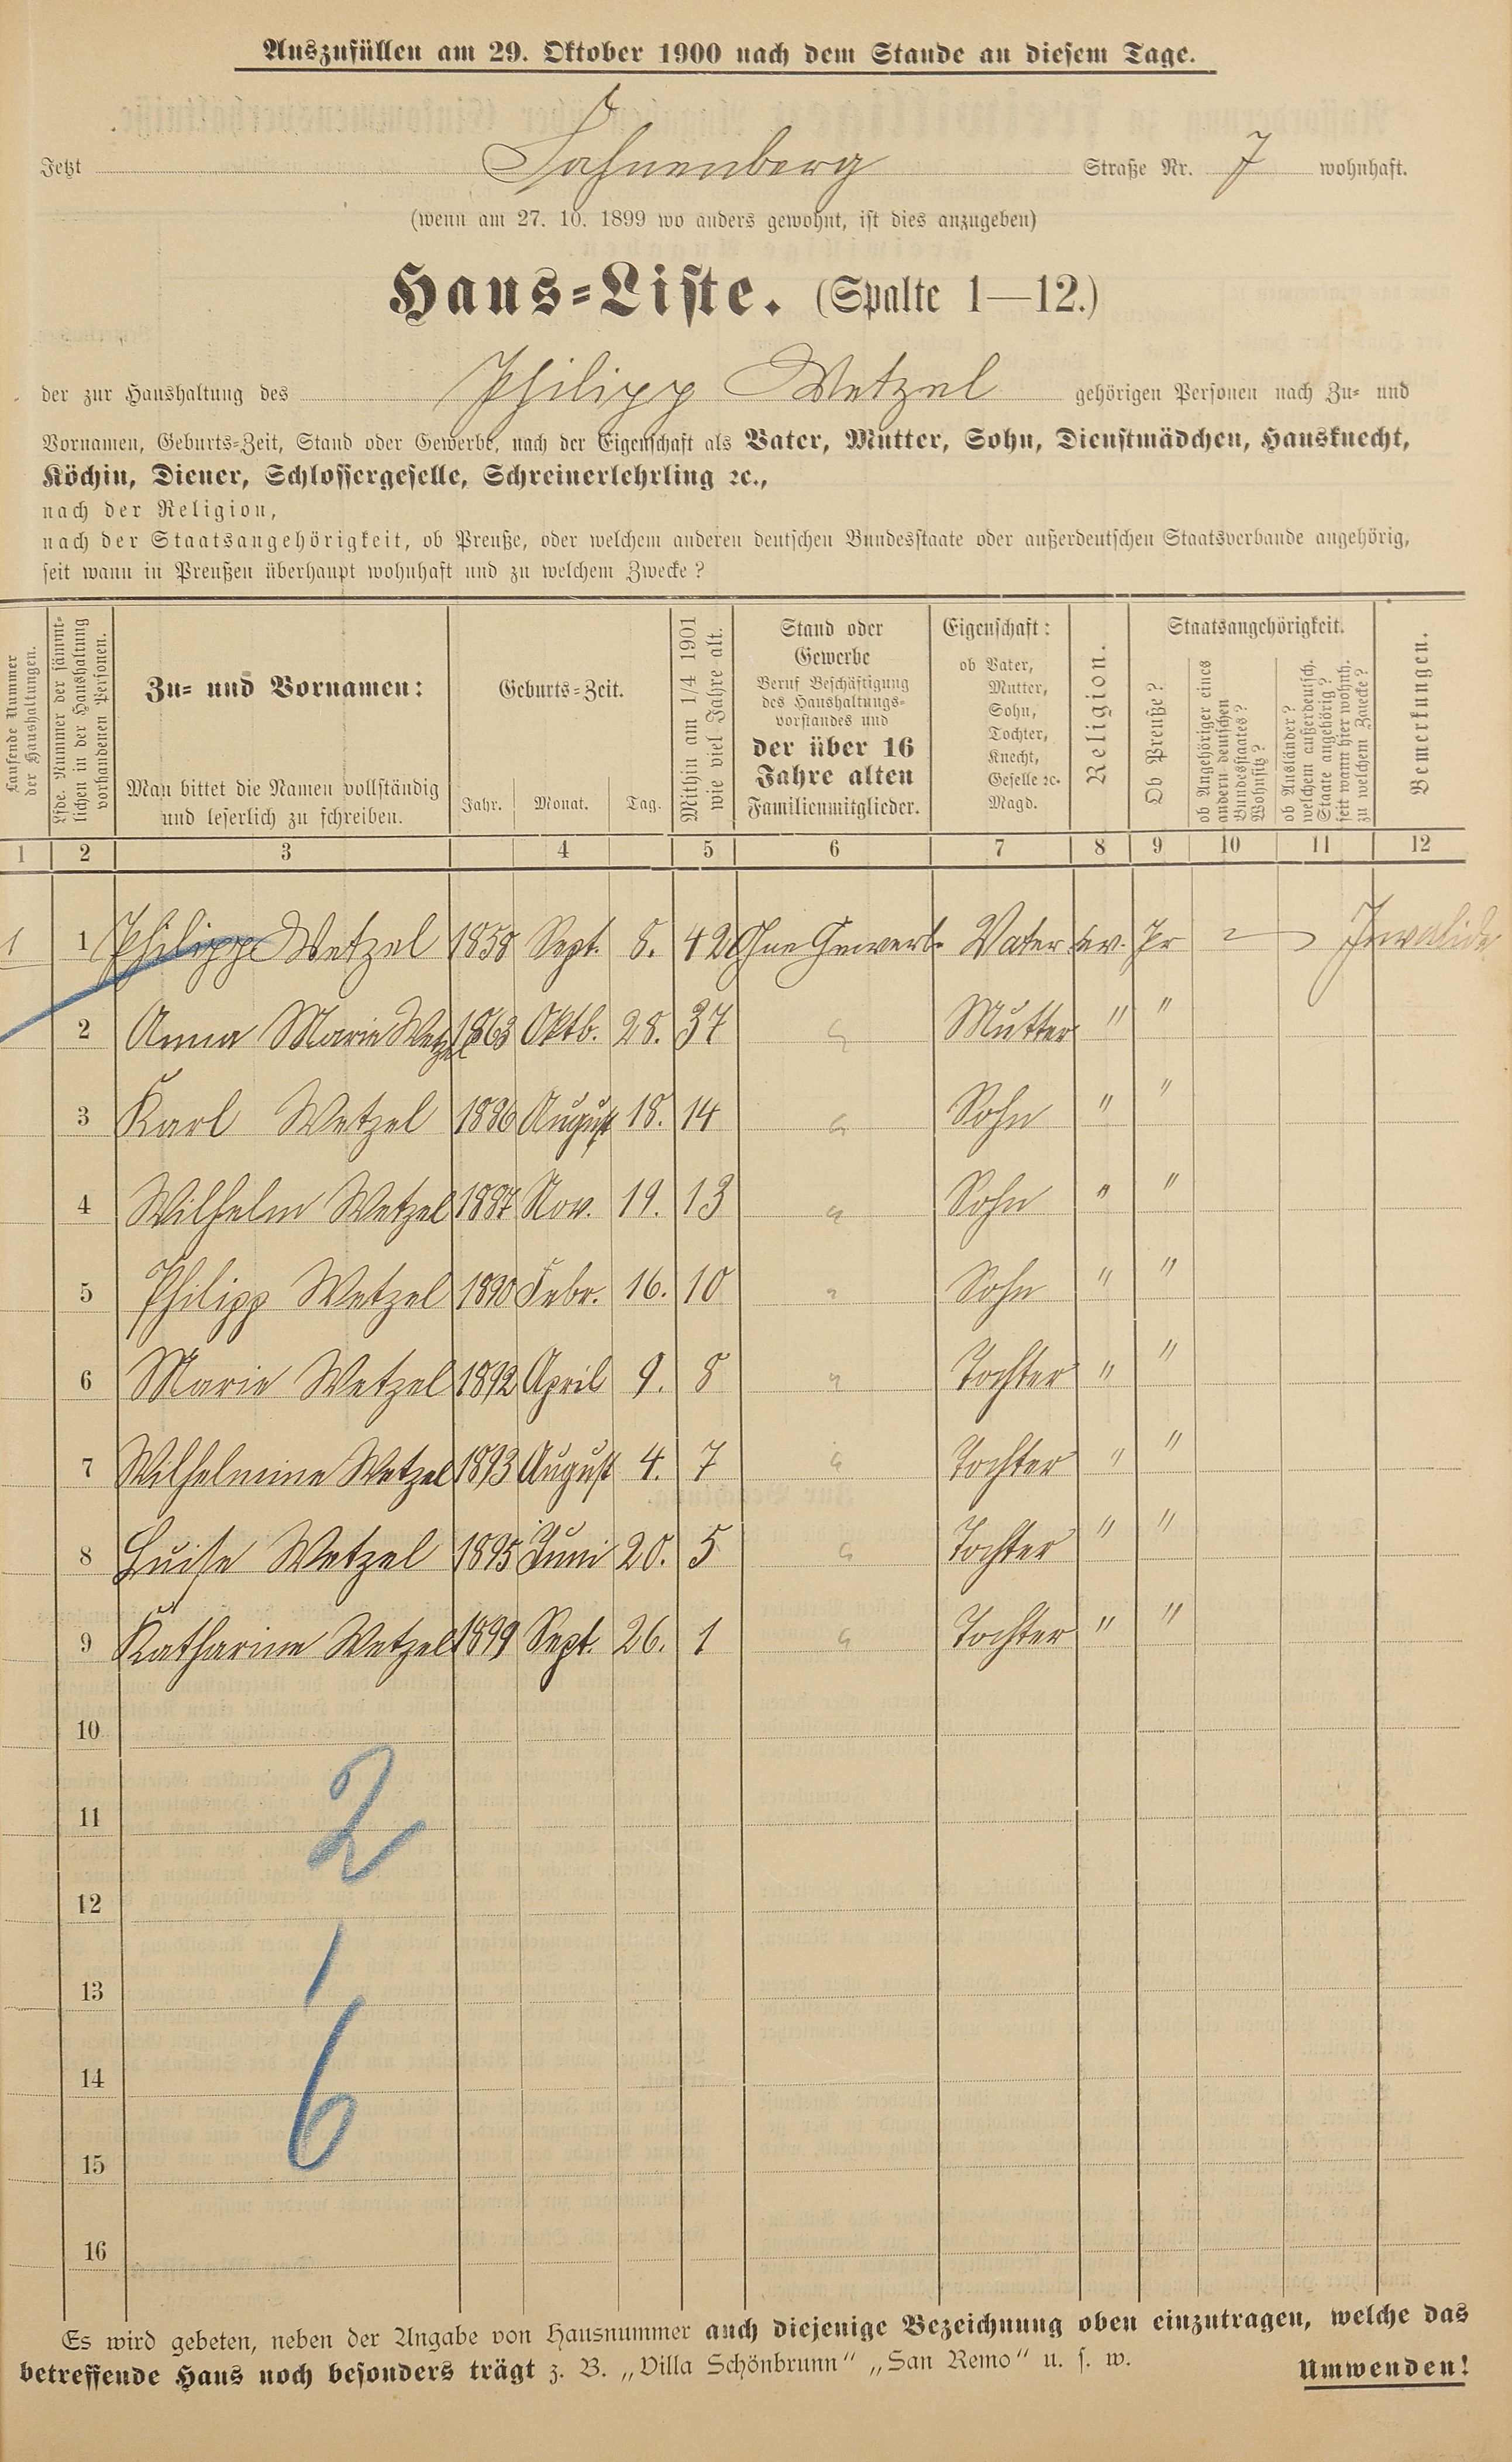 Auszufüllen am 29. Oktober 1900 nach dem Stande an diesem Tage.
Jetzt Hahnenberg Straße Nr. 7 wohnhaft.
(wenn am 27. 10. 1899 wo anders gewohnt, ist dies anzugeben)
Haus=Liste. (Spalte 1—12.)
der zur Haushaltung des Philipp Wetzel gehörigen Personen nach Zu= und
Vornamen, Geburts=Zeit, Stand oder Gewerbe, nach der Eigenschaft als Vater, Mutter, Sohn, Dienstmädchen, Hausknecht,
Köchin, Diener, Schlossergeselle, Schreinerlehrling ꝛc.,
nach der Religion,
nach der Staatsangehörigkeit, ob Preuße, oder welchem anderen deutschen Bundesstaate oder außerdeutschen Staatsverbande angehörig,
seit wann in Preußen überhaupt wohnhaft und zu welchem Zwecke?
Laufende Nummer
der Haushaltungen.
Lfde. Nummer der sämmt=
lichen in der Haushaltung
vorhandenen Personen.
Zu= und Vornamen:
Man bittet die Namen vollständig
und leserlich zu schreiben.
Geburts=Zeit.
Jahr. Monat. Tag.
Mithin am 1/4 1901
wie viel Jahre alt.
Stand oder
Gewerbe
Beruf Beschäftigung
des Haushaltungs=
vorstandes und
der über 16
Jahre alten
Familienmitglieder.
Eigenschaft:
ob Vater,
Mutter,
Sohn,
Tochter,
Knecht,
Geselle ꝛc.
Magd.
Religion.
Staatsangehörigkeit.
Ob Preuße?
ob Angehöriger eines
andern deutschen
Bundesstaates?
Wohnsitz?
ob Ausländer?
welchem außerdeutsch.
Staate angehörig?
seit wann hier wohnh.
zu welchem Zwecke?
Bemerkungen.
1 2 3 4 5 6 7 8 9 10 11 12
1 1 Philipp Wetzel 1858 Sept. 8. 42 Ohne Gewerb. Vater ev. Pr Invalide
2 Anna Marie Wetzel 1863 Oktb. 28. 37 Mutter " "
3 Karl Wetzel 1886 August 18. 14 Sohn " "
4 Wilhelm Wetzel 1887 Nov. 19. 13 Sohn " "
5 Philipp Wetzel 1890 Febr. 16. 10 Sohn " "
6 Marie Wetzel 1892 April 9. 8 Tochter " "
7 Wilhelmine Wetzel 1893 August 4. 7 Tochter " "
8 Luise Wetzel 1895 Juni 20. 5 Tochter " "
9 Katharine Wetzel 1899 Sept. 26. 1 Tochter " "
10
11 2
12
13 1
14 6
15
16
Es wird gebeten, neben der Angabe von Hausnummer auch diejenige Bezeichnung oben einzutragen, welche das
betreffende Haus noch besonders trägt z. B. „Villa Schönbrunn“ „San Remo“ u. s. w.
Umwenden!